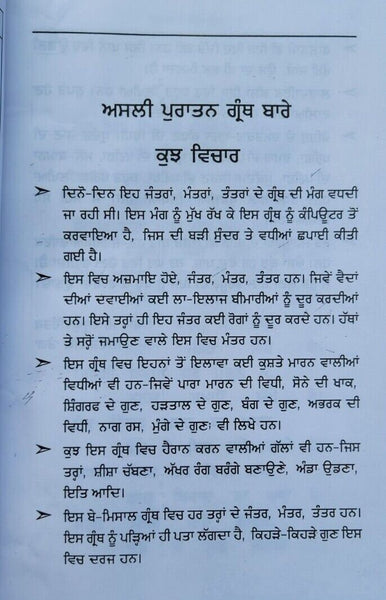 ਅਸਲੀ ਪੁਰਾਤਨ ਗ੍ਰੰਥ ਬਾਰੇ
ਕੁਝ ਵਿਚਾਰ
➢ ਦਿਨੋ-ਦਿਨ ਇਹ ਜੰਤਰਾਂ, ਮੰਤਰਾਂ, ਤੰਤਰਾਂ ਦੇ ਗ੍ਰੰਥ ਦੀ ਮੰਗ ਵਧਦੀ
ਜਾ ਰਹੀ ਸੀ। ਇਸ ਮੰਗ ਨੂੰ ਮੁੱਖ ਰੱਖ ਕੇ ਇਸ ਗ੍ਰੰਥ ਨੂੰ ਕੰਪਿਊਟਰ ਤੋਂ
ਕਰਵਾਇਆ ਹੈ, ਜਿਸ ਦੀ ਬੜੀ ਸੁੰਦਰ ਤੇ ਵਧੀਆਂ ਛਪਾਈ ਕੀਤੀ
ਗਈ ਹੈ।
➢ ਇਸ ਵਿਚ ਅਜ਼ਮਾਇ ਹੋਏ, ਜੰਤਰ, ਮੰਤਰ, ਤੰਤਰ ਹਨ। ਜਿਵੇਂ ਵੈਦਾਂ
ਦੀਆਂ ਦਵਾਈਆਂ ਕਈ ਲਾ-ਇਲਾਜ ਬੀਮਾਰੀਆਂ ਨੂੰ ਦੂਰ ਕਰਦੀਆਂ
ਹਨ। ਇਸੇ ਤਰ੍ਹਾਂ ਹੀ ਇਹ ਜੰਤਰ ਕਈ ਰੋਗਾਂ ਨੂੰ ਦੂਰ ਕਰਦੇ ਹਨ। ਹੱਥਾਂ
ਤੇ ਸਰ੍ਹੋਂ ਜਮਾਉਣ ਵਾਲੇ ਇਸ ਵਿਚ ਮੰਤਰ ਹਨ।
➢ ਇਸ ਗ੍ਰੰਥ ਵਿਚ ਇਹਨਾਂ ਤੋਂ ਇਲਾਵਾ ਕਈ ਕੁਸ਼ਤੇ ਮਾਰਨ ਵਾਲੀਆਂ
ਵਿਧੀਆਂ ਵੀ ਹਨ-ਜਿਵੇਂ ਪਾਰਾ ਮਾਰਨ ਦੀ ਵਿਧੀ, ਸੋਨੇ ਦੀ ਖਾਕ,
ਸ਼ਿੰਗਰਫ ਦੇ ਗੁਣ, ਹੜਤਾਲ ਦੇ ਗੁਣ, ਬੰਗ ਦੇ ਗੁਣ, ਅਭਰਕ ਦੀ
ਵਿਧੀ, ਨਾਗ ਰਸ, ਮੂੰਗੇ ਦੇ ਗੁਣ: ਵੀ ਲਿਖੇ ਹਨ।
➢ ਕੁਝ ਇਸ ਗ੍ਰੰਥ ਵਿਚ ਹੈਰਾਨ ਕਰਨ ਵਾਲੀਆਂ ਗੱਲਾਂ ਵੀ ਹਨ-ਜਿਸ
ਤਰ੍ਹਾਂ, ਸ਼ੀਸ਼ਾ ਚੱਬਣਾ, ਅੱਖਰ ਰੰਗ ਬਰੰਗੇ ਬਣਾਉਣੇ, ਅੰਡਾ ਉਡਣਾ,
ਇਤਿ ਆਦਿ।
➢ ਇਸ ਬੇ-ਮਿਸਾਲ ਗ੍ਰੰਥ ਵਿਚ ਹਰ ਤਰ੍ਹਾਂ ਦੇ ਜੰਤਰ, ਮੰਤਰ, ਤੰਤਰ ਹਨ।
ਇਸ ਗ੍ਰੰਥ ਨੂੰ ਪੜ੍ਹਿਆਂ ਹੀ ਪਤਾ ਲੱਗਦਾ ਹੈ, ਕਿਹੜੇ-ਕਿਹੜੇ ਗੁਣ ਇਸ
ਵਿਚ ਦਰਜ ਹਨ।